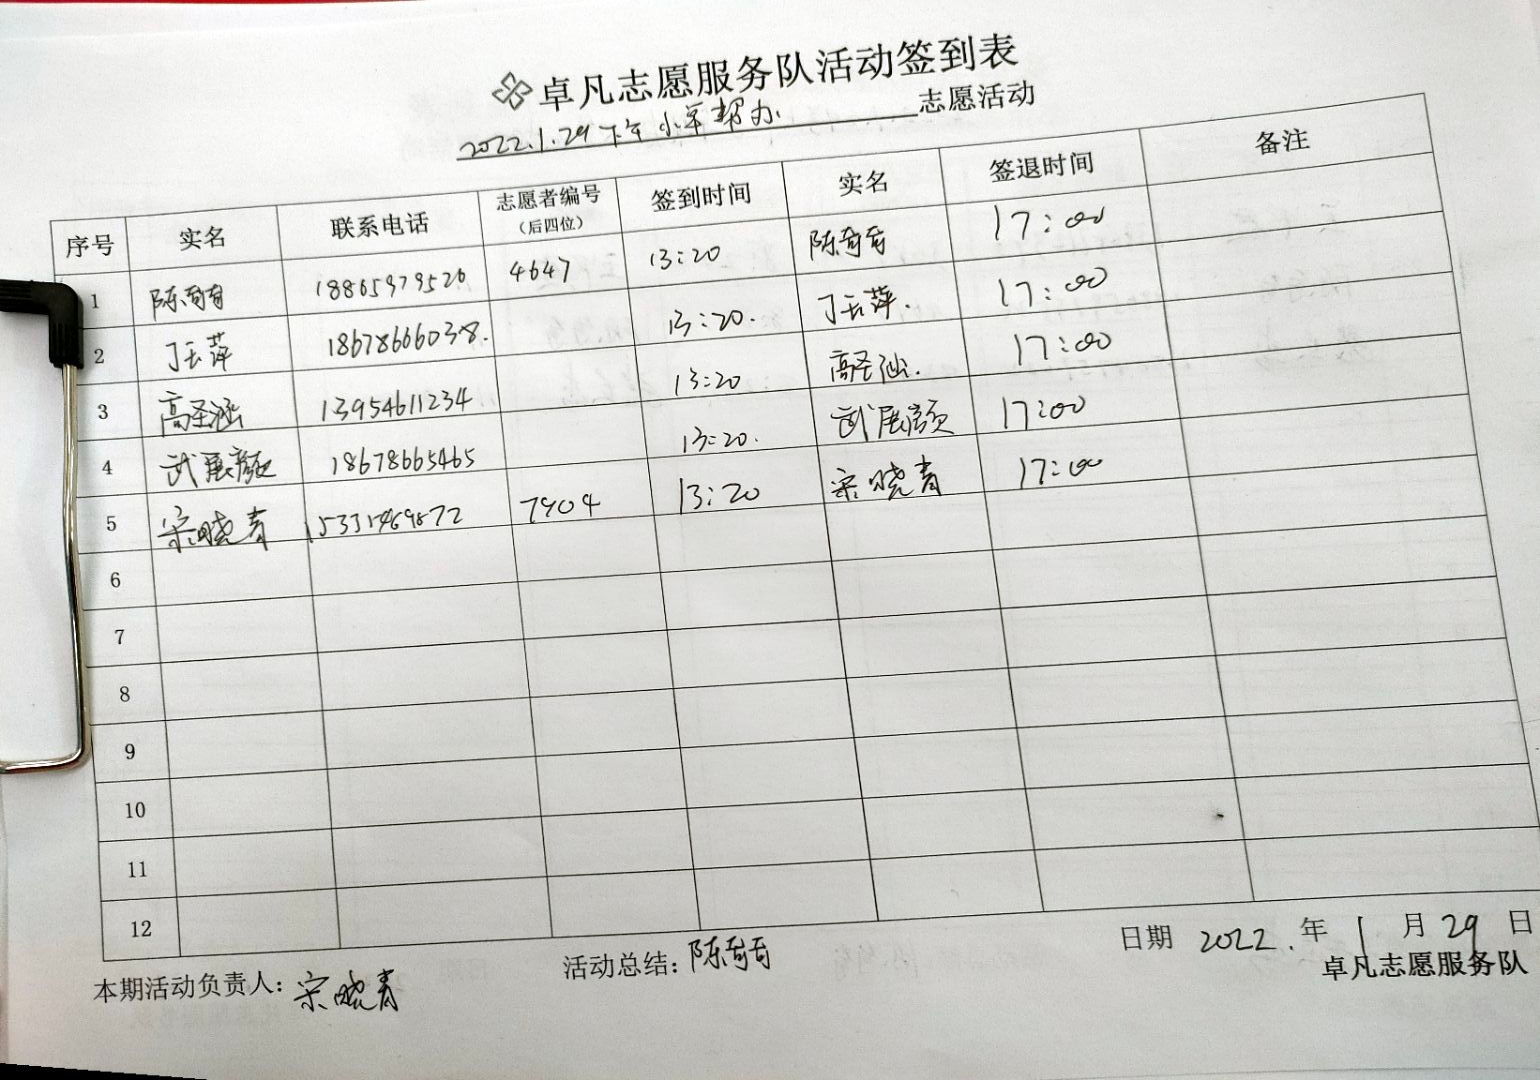 卓凡志愿服务队活动签到表
2022.1.29下午 小军帮办 志愿活动
序号 实名 联系电话 志愿者编号（后四位） 签到时间 实名 签退时间 备注
1 陈奇奇 18865979526 4647 13:20 陈奇奇 17:00
2 丁云萍 18678666038. 13:20. 丁云萍. 17:00
3 高圣涵 13954611234 13:20 高圣涵. 17:00
4 武展颜 18678665465 13:20. 武展颜 17:00
5 宋晓青 15331469872 7904 13:20 宋晓青 17:00
6
7
8
9
10
11
12
本期活动负责人：宋晓青 活动总结：陈奇奇 日期 2022. 年 1 月 29 日
卓凡志愿服务队